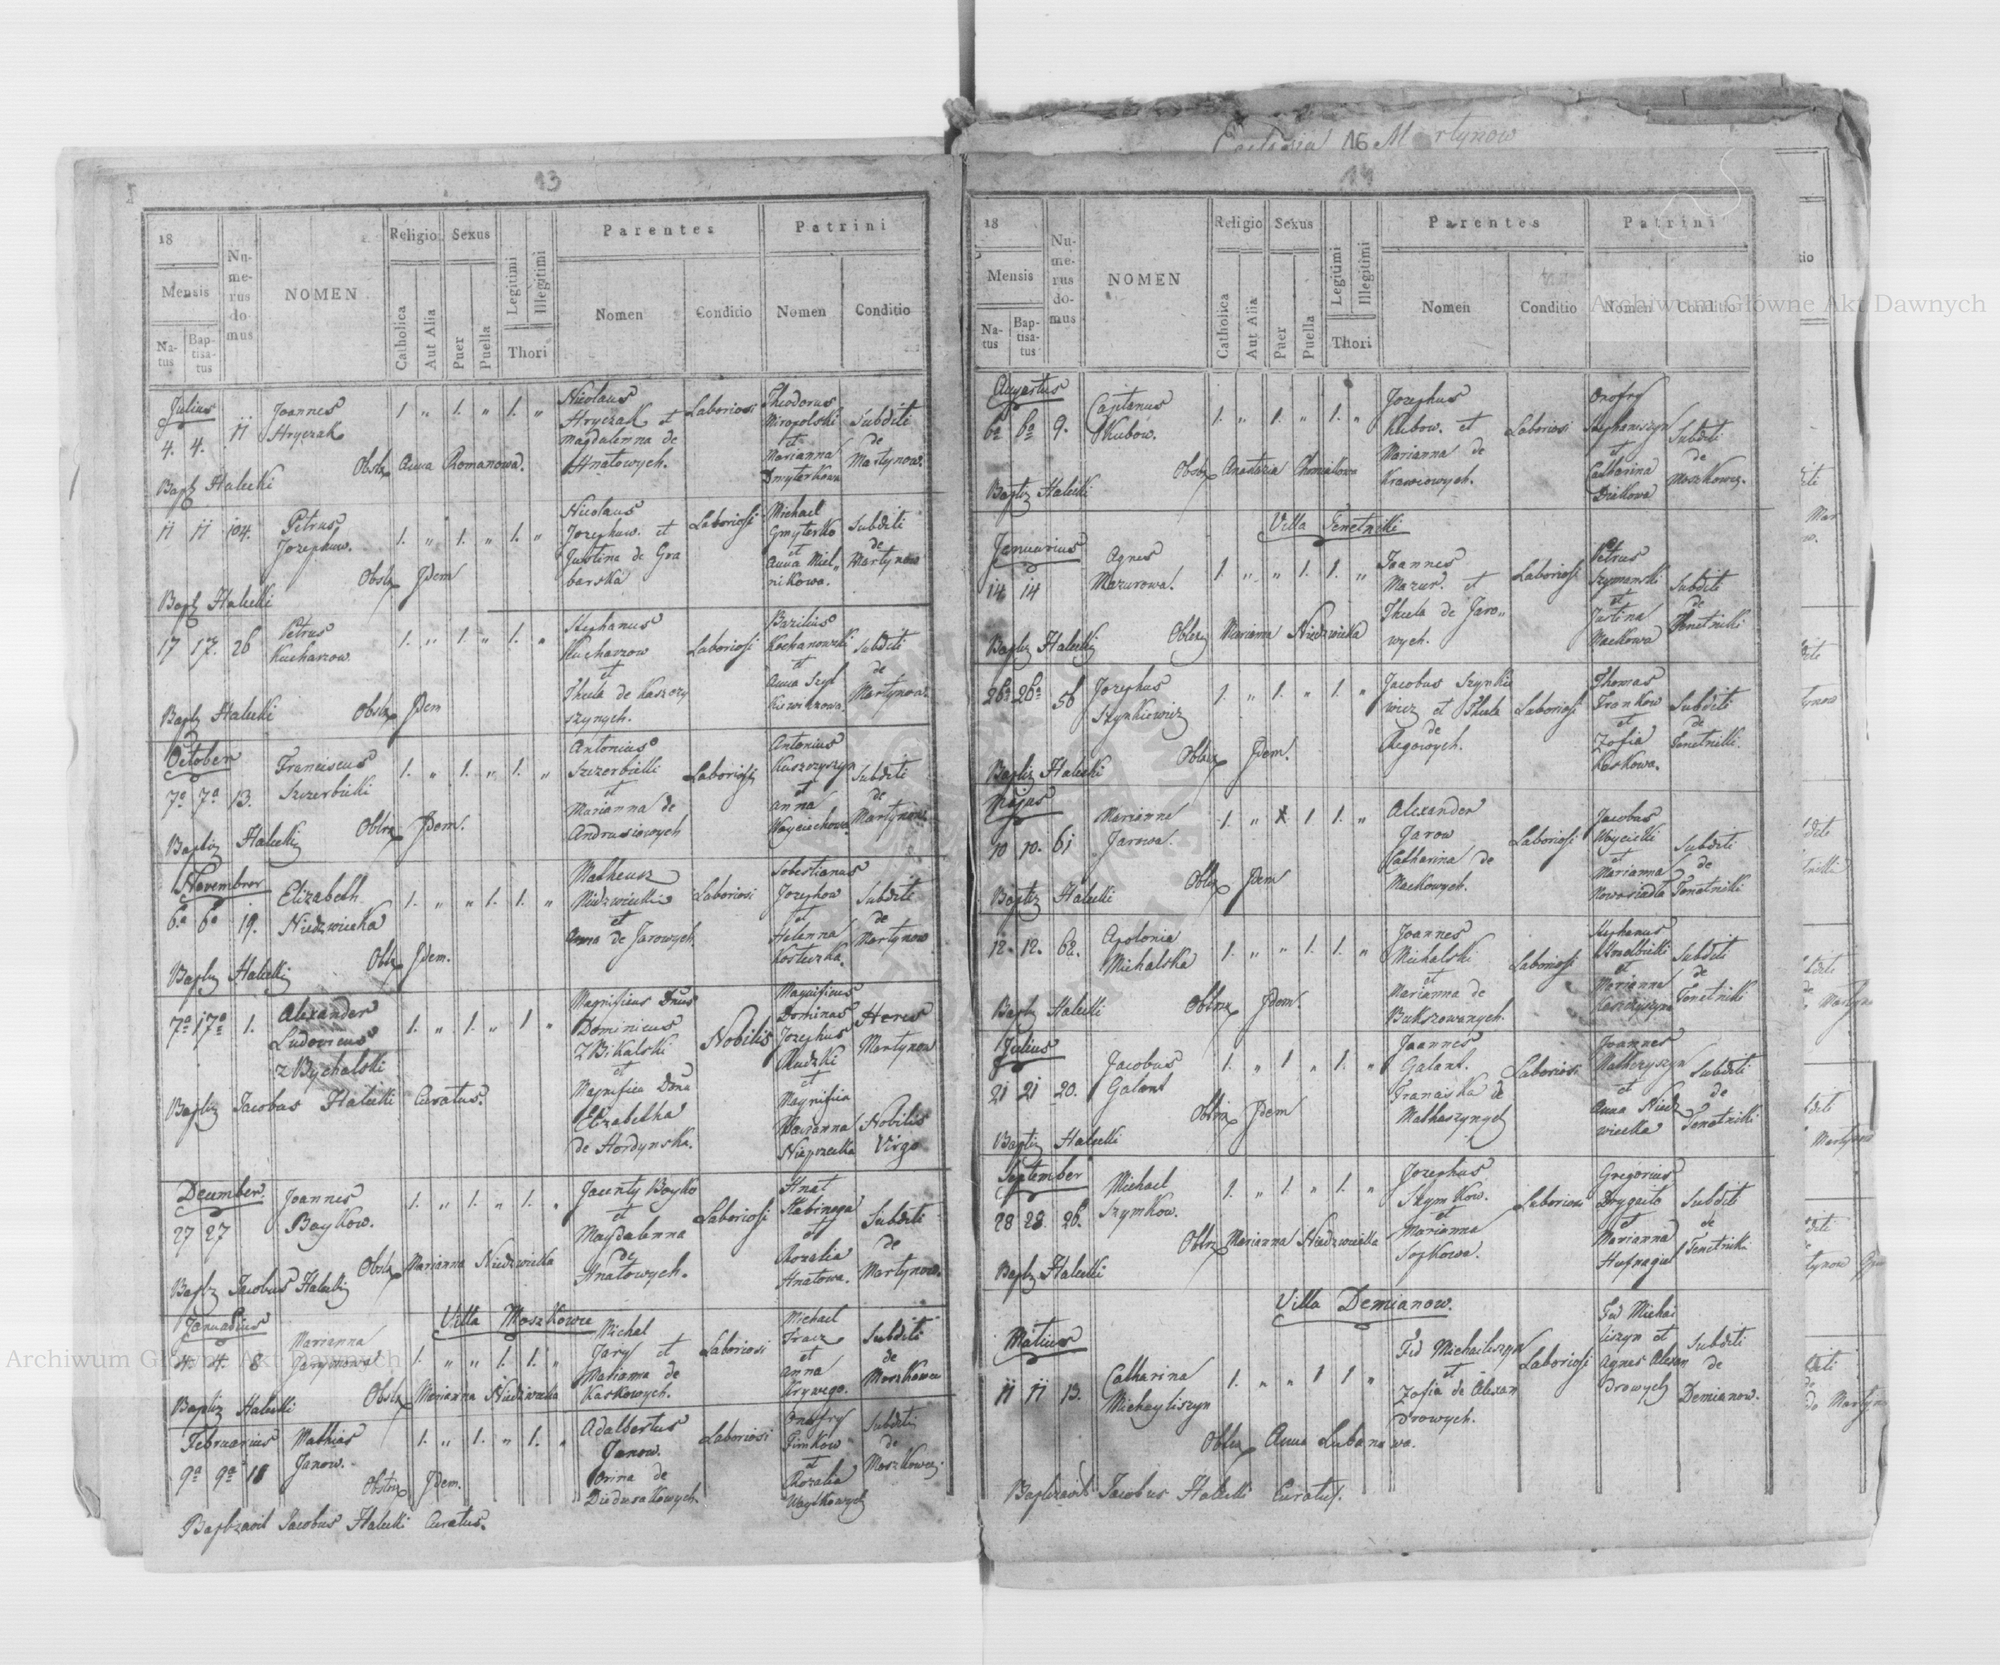 Ecclesia 16 Martynow
13
18
Mensis
Natus
Baptisatus
Numerus domus
NOMEN
Religio
Catholica
Aut Alia
Sexus
Puer
Puella
Legitimi
Illegitimi
Thori
Parentes
Nomen
Conditio
Patrini
Nomen
Conditio
Julius
4. 4. 11
Joannes
Hryczak
1 „ 1. „ 1. „
Nicolaus
Hryczak et
Magdalenna de
Hnatowych.
Laboriosi
Theodorus
Niropolski
et
Marianna
Dmyterkowa
Subditi
de
Martynow.
Obstx Anna Romanowa.
Bapt Halecki
11 11 104.
Petrus
Jozephuw.
1. „ 1. „ 1. „
Nicolaus
Jozephuw. et
Justina de Gra
barska
Laboriosi
Michael
Gmyterko
et
Anna Miel„
nikowa.
Subditi
de
Martynow
Obstx Jdem
Bapt Halecki
17 17. 26
Petrus
Kucharzow.
1. „ 1. „ 1. „
Stephanus
Kucharzow
et
Thecla de Kaszczy
szynych.
Laboriosi
Bazilius
Kochanowski
et
Anna Szyl
kiewiczowa
Subditi
de
Martynow.
Obstx Jdem
Bapt Halecki
October
7a 7a 13.
Franciscus
Szczerbicki
1. „ 1. „ 1. „
Antonius
Szczerbicki
et
Marianna de
Andrusiowych
Laboriosi
Antonius
Kaszczyszyn
et
Anna
Woyciechowa
Subditi
de
Martynow
Obtrx Jdem.
Baptiz Halecki
November
6a 6a 19.
Elizabeth
Niedzwiecka
1. „ „ 1. 1. „
Matheusz
Niedzwiecki
et
Anna de Jarowych
Laboriosi
Sobestianus
Jozephow
et
Helenna
Kosteczka.
Subditi
de
Martynow
Obtx Jdem.
Baptiz Halecki
7a 17a 1.
Alexander
Ludovicus
z Bychalski
1. „ 1. „ 1 „
Magnificus Dnus
Dominicus
z Bikalski
et
Magnifica Dna
Elizabetha
de Hordynska.
Nobilis
Magnificus
Dominus
Jozephus
Rudzki
et
Magnifica
Marianna
Niezrecka
Heres
Martynow
Nobilis
Virgo
Baptiz Jacobus Halecki Curatus.
December
27 27
Joannes
Boykow.
1. „ 1. „ 1. „
Jacenty Boyko
et
Magdalenna
de
Hnatowych.
Laboriosi
Hnat
Habinaga
et
Rozalia
Hnatowa.
Subditi
de
Martynow.
Obstx Marianna Niedzwiecka
Baptz Jacobus Halecki
Villa Moszkowce
Januarius
4. 4. 8
Marianna
Jarymowa
1. „ „ 1. 1. „
Michal
Jary et
Marianna de
Kaskowych.
Laboriosi
Michael
Fracz
et
Anna
Krywego.
Subditi
de
Moszkowce
Obstx Marianna Niedzwiecka
Baptiz Halecki
Februarius
9a 9a 18
Mathias
Janow.
1. „ 1. „ 1. „
Adalbertus
Janow.
Orina de
Diedusakowych.
Laboriosi
Onofry
Fimkow
et
Rozalia
Woytkowych
Subditi
de
Moszkowce.
Obstrix Jdem.
Baptzavit Jacobus Halecki Curatus.
14
18
Mensis
Natus
Baptisatus
Numerus domus
NOMEN
Religio
Catholica
Aut Alia
Sexus
Puer
Puella
Legitimi
Illegitimi
Thori
Parentes
Nomen
Conditio
Patrini
Nomen
Conditio
Augustus
6a 6a 9.
Cajetanus
Kubow.
1. „ 1. „ 1. „
Jozephus
Kubow. et
Marianna de
Krawcowych.
Laboriosi
Onofry
Stephaniszyn
et
Catharina
Dzikowa
Subditi
de
Moszkowce.
Obstx Anastazia Chomiakowa
Baptiz Halecki
Villa Tenetniki
Januarius
14 14
Agnes
Mazurowa.
1 „ „ 1. 1. „
Joannes
Mazur. et
Thecla de Jaro„
wych.
Laboriosi
Petrus
Szymanski
et
Justina
Mackowa
Subditi
de
Tenetniki
Obtrx Marianna Niedzwiecka
Baptiz Halecki
26a 26a 56
Jozephus
Szynkiewicz
1. „ 1. „ 1. „
Jacobus Szynkie
wicz et Thecla
de
Regowych.
Laboriosi
Thomas
Frankow
et
Zofia
Kaskowa.
Subditi
de
Tenetniki.
Obtrx Jdem.
Baptiz Halecki
Majus
10 10. 61
Marianne
Jarowa.
1. „ 1 1. „
Alexander
Jarow
Catharina de
Mackowych.
Laboriosi
Jacobus
Woycicki
et
Marianna
Nowosiadla
Subditi
de
Tenetniki
Obtx Jdem
Baptiz Halecki
12. 12. 62.
Apolonia
Michalska
1. „ „ 1. 1. „
Joannes
Michalski
et
Marianna de
Bukszowanych.
Laboriosi
Stephanus
et
Marianna
Subditi
de
Tenetniki
Obtrx Jdem.
Baptiz Halecki
Julius
21 21 20.
Jacobus
Galant
1. „ 1 „ 1. „
Joannes
Galant.
Franciska de
Mathaszynych
Laboriosi
Joannes
Mathczyszyn
et
Anna Niedz
wiecka
Subditi
de
Tenetniki
Obtrix Jdem
Baptiz Halecki
September
28 28. 26.
Michael
Szymkow.
1. „ 1 „ 1. „
Jozephus
Szymkow.
et
Marianna
Sozkowa.
Laboriosi
Gregorius
Drygaito
et
Marianna
Hufnagiel
Subditi
de
Tenetniki
Obtrx Marianna Niedzwiecka
Baptz Halecki
Villa Demianow.
Matius
11 11 13.
Catharina
Michayliszyn
1. „ „ 1 1 „
Fed Michailiszyn
et
Zofia de Alexan
drowych.
Laboriosi
Fed Michai
liszyn et
Agnes Alexan
drowych
Subditi
de
Demianow.
Obtrx Anna Lubanowa.
Baptizavit Jacobus Halecki Curatus.
Archiwum Główne Akt Dawnych
Archiwum Główne Akt Dawnych